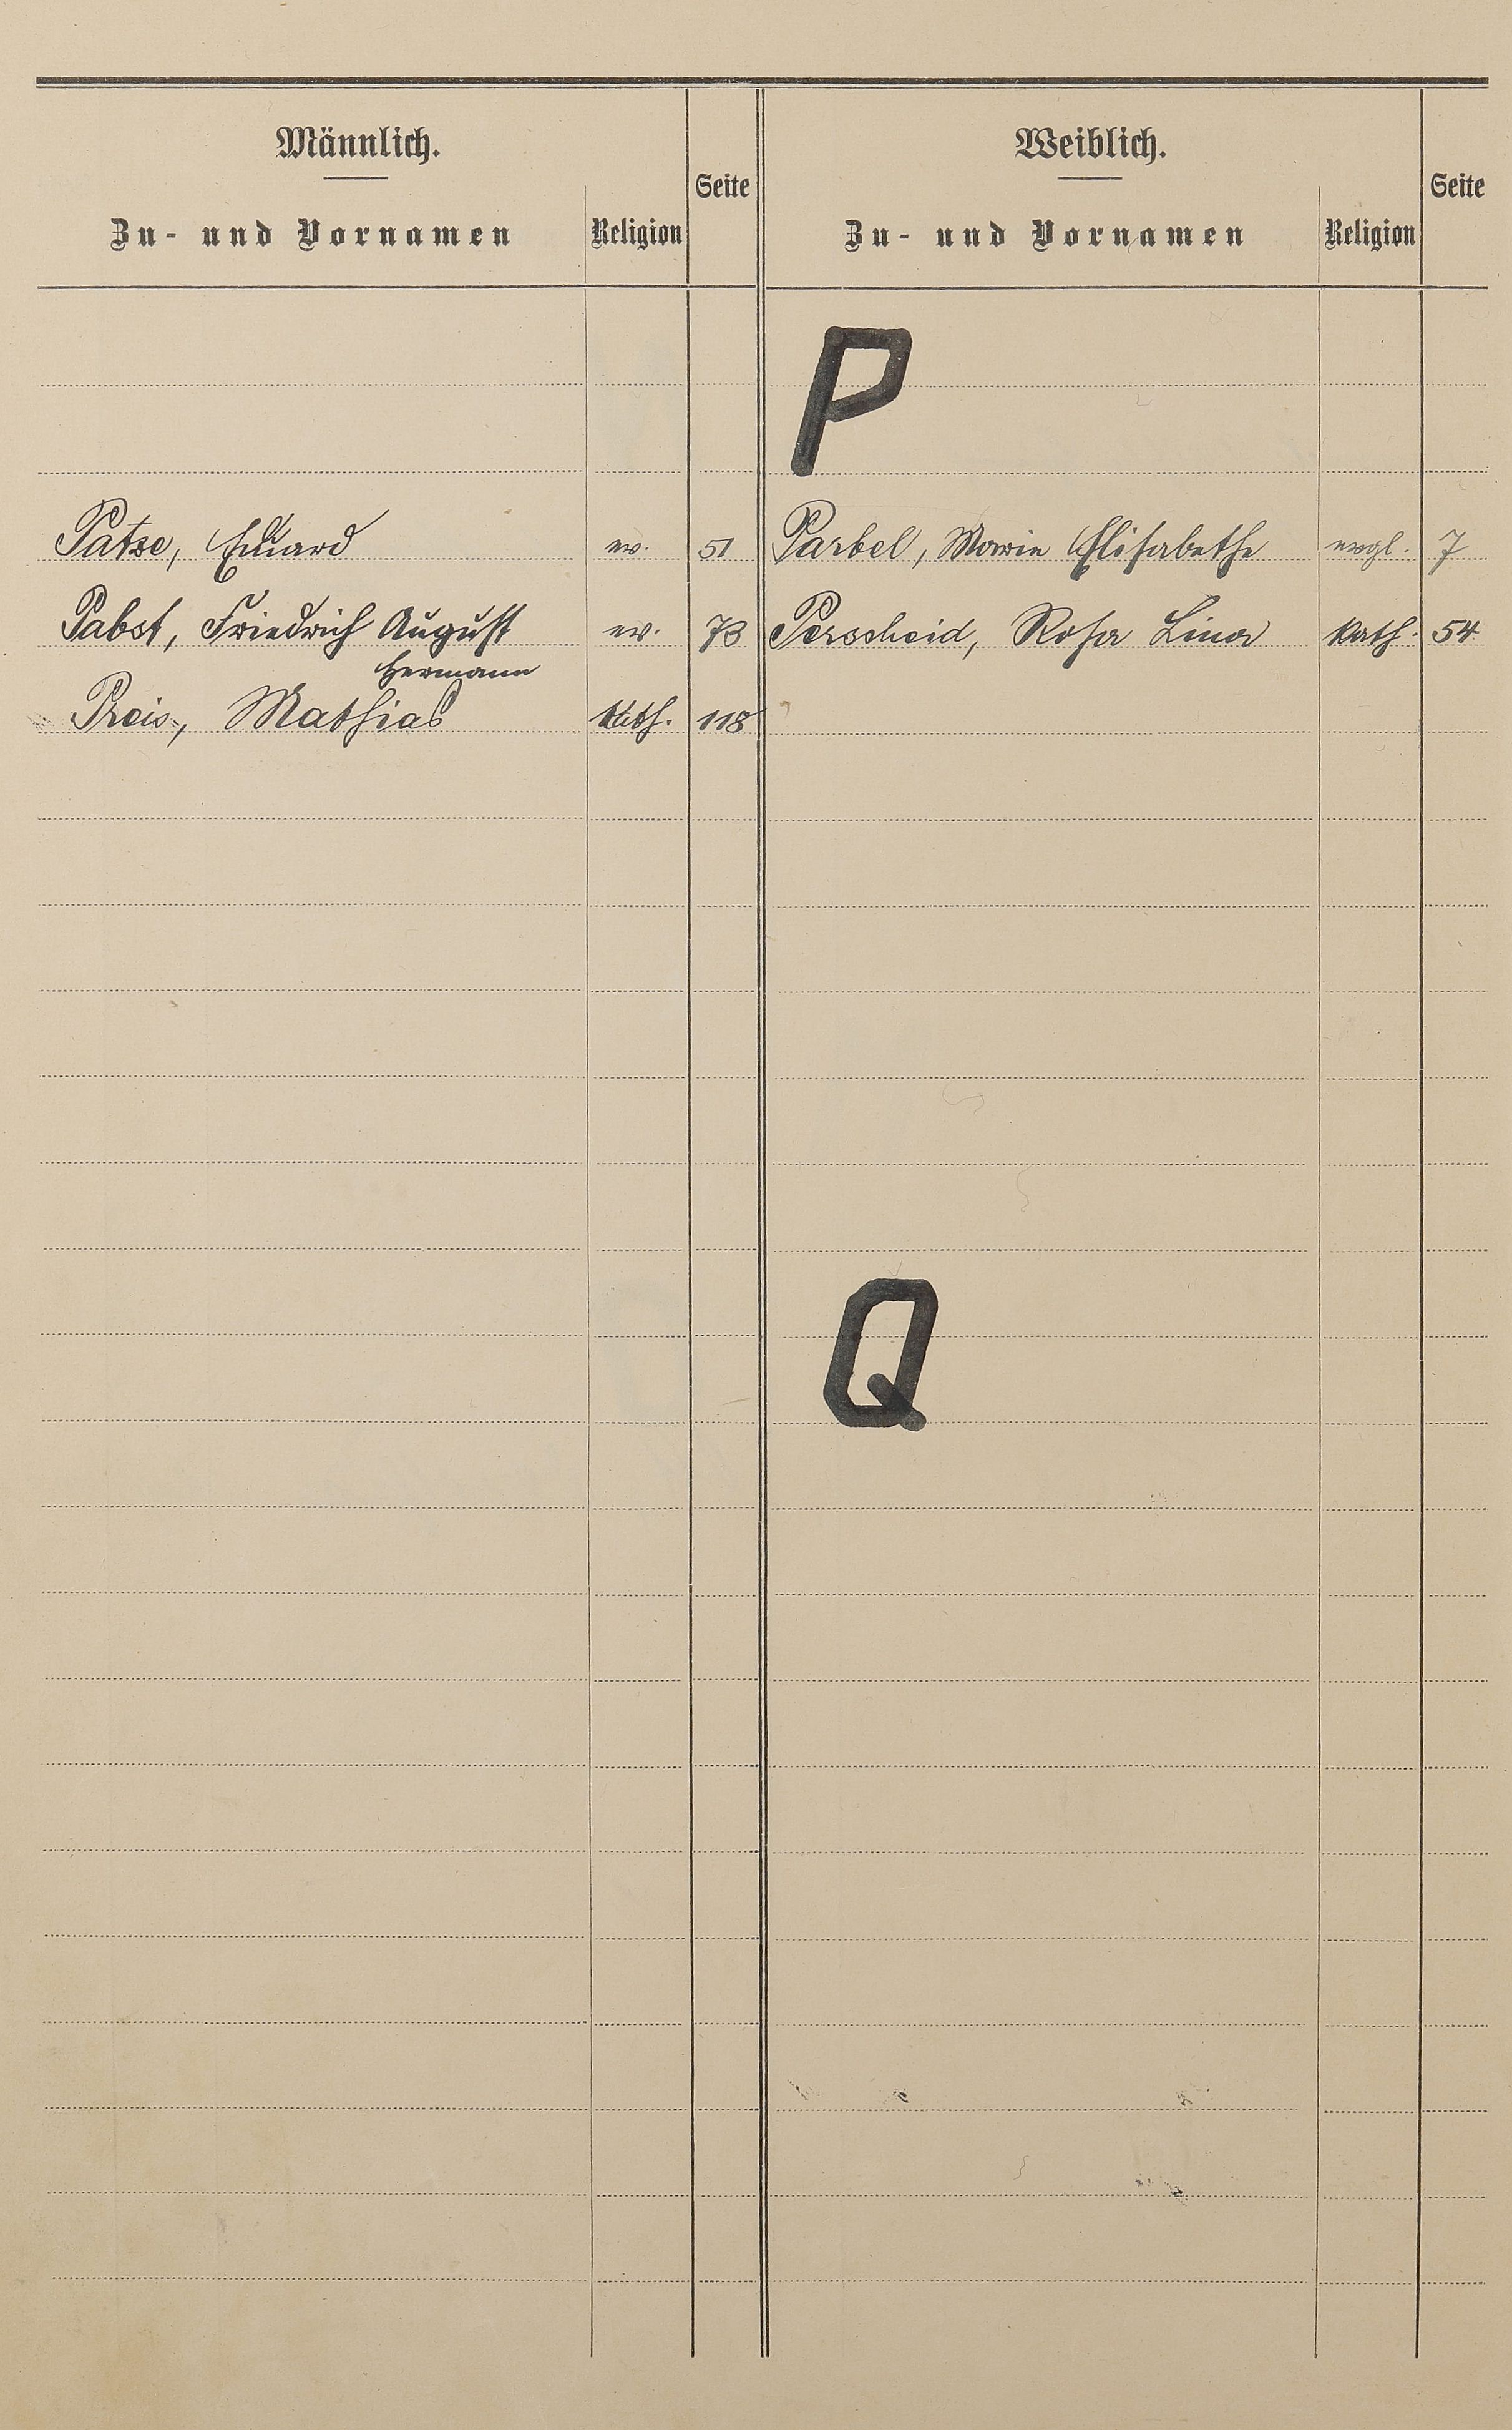 Männlich.
Weiblich.
Seite
Seite
Zu- und Vornamen
Religion
Zu- und Vornamen
Religion
P
Patze, Eduard ev. 51
Parbel, Marie Elisabethe evgl. 7
Pabst, Friedrich August ev. 73
Hermann
Perscheid, Rosa Lina kath. 54
Preis, Mathias kath. 118
Q